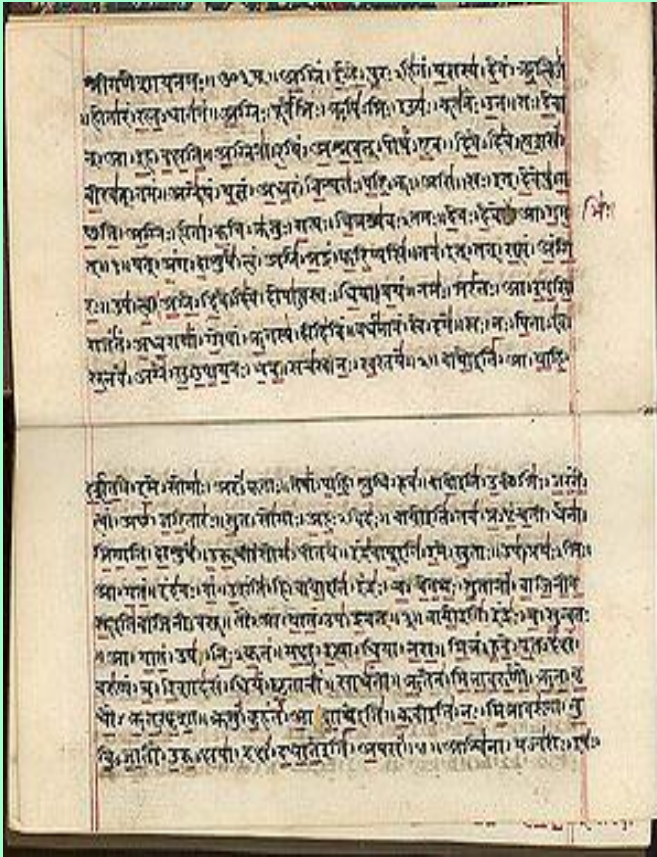 श्रीगणेशायनमः॥ॐ३म्॥अग्निं।ईळे।पुरःऽहितं।यज्ञस्य।देवं।ऋत्विजं
॥होतारं।रत्नऽधातमं॥अग्निः।पूर्वेभिः।ऋषिभिः।ईड्यः।नूतनैः।उत।सः।देवा
न्।आ।इह।वक्षति॥अग्निना।रयिं।अश्नवत्।पोषं।एव।दिवेऽदिवे।यशसं
वीरवत्ऽतमं॥अग्ने।यं।यज्ञं।अध्वरं।विश्वतः।परिऽभूः।असि।सः।इत्।देवेषु।ग
च्छति॥अग्निः।होता।कविऽक्रतुः।सत्यः।चित्रश्रवःऽतमः।देवः।देवे आ।गम
भिः॥
त्॥१॥यत्।अंग।दाशुषे।त्वं।अग्ने।भद्रं।करिष्यसि।तव।इत्।तत्।सत्यं।अंगि
रः॥उप।त्वा।अग्ने।दिवेऽदिवे।दोषाऽवस्तः।धिया।वयं।नमः।भरंतः।आ।इमसि॥
राजंतं।अध्वराणां।गोपां।ऋतस्य।दीदिविं।वर्धमानं।स्वे।दमे॥सः।नः।पिताऽइ
सूनवे।अग्ने।सुऽउपायनः।भव।सचस्व।नः।स्वस्तये॥२॥वायोइति।आ।याहि।
दर्शत।इमे।सोमाः।अरंऽकृताः।तेषां।पाहि।श्रुधि।हवं॥वायोइति।उक्थेभिः।जरंते
त्वां।अच्छ।जरितारः।सुतऽसोमाः।अहःऽविदः॥वायोइति।तव।प्रऽपृंचती।धेना।
जिगाति।दाशुषे।उरूची।सोमऽपीतये॥इंद्रवायूइति।इमे।सुताः।उप।प्रयःऽभिः।
आ।गतं।इंदवः।वां।उशंति।हि॥वायोइति।इंद्रः।च।चेतथः।सुतानां।वाजिनीव
सूइतिवाजिनीऽवसू।तौ।आ।यातं।उप।द्रवत्॥३॥वायोइति।इंद्रः।च।सुन्वतः
।आ।यातं।उप।निःऽकृतं।मक्षु।इत्था।धिया।नरा॥मित्रं।हुवे।पूतऽदक्षं
वरुणं।च।रिशादसं।धियं।घृताचीं।साधंता॥ऋतेन।मित्रावरुणौ।ऋतऽवृ
धौ।ऋतऽस्पृशा।क्रतुं।बृहंतं।आशाथेइति॥कवीइति।नः।मित्रावरुणा।तु
विऽजातौ।उरुऽक्षया।दक्षं।दधातेइति।अपसं॥४॥अश्विना।यज्वरीः।इषः।